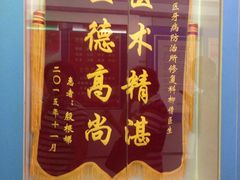 医牙病防治所修复科柳倩医生
术精湛
德高尚
患者：殷根娣
二〇一五年十一月